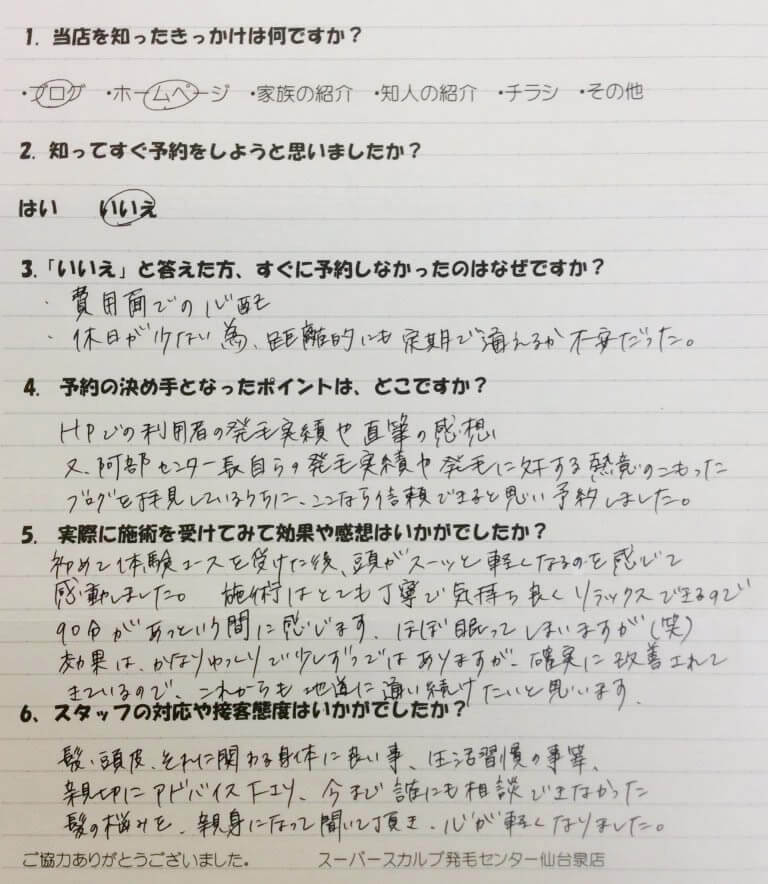 1. 当店を知ったきっかけは何ですか？
・ブログ ・ホームページ ・家族の紹介 ・知人の紹介 ・チラシ ・その他
2. 知ってすぐ予約をしようと思いましたか？
はい いいえ
3.「いいえ」と答えた方、すぐに予約しなかったのはなぜですか？
・費用面での心配
・休日が少ない為、距離的にも定期で通えるか不安だった。
4. 予約の決め手となったポイントは、どこですか？
HPでの利用者の発毛実績や直筆の感想
又、阿部センター長自らの発毛実績や発毛に対する熱意のこもった
ブログを拝見しているうちに、ここなら信頼できると思い予約しました。
5. 実際に施術を受けてみて効果や感想はいかがでしたか？
初めて体験コースを受けた後、頭がスーッと軽くなるのを感じて
感動しました。 施術はとても丁寧で気持ち良くリラックスできるので
90分があっという間に感じます、ほぼ眠ってしまいますが(笑)
効果は、かなりゆっくりで少しずつではありますが、確実に改善されて
きているので、これからも地道に通い続けたいと思います。
6、スタッフの対応や接客態度はいかがでしたか？
髪、頭皮、それに関わる身体に良い事、生活習慣の事等、
親切にアドバイス下さり、今まで誰にも相談できなかった
髪の悩みを、親身になって聞いて頂き、心が軽くなりました。
ご協力ありがとうございました． スーパースカルプ発毛センター仙台泉店